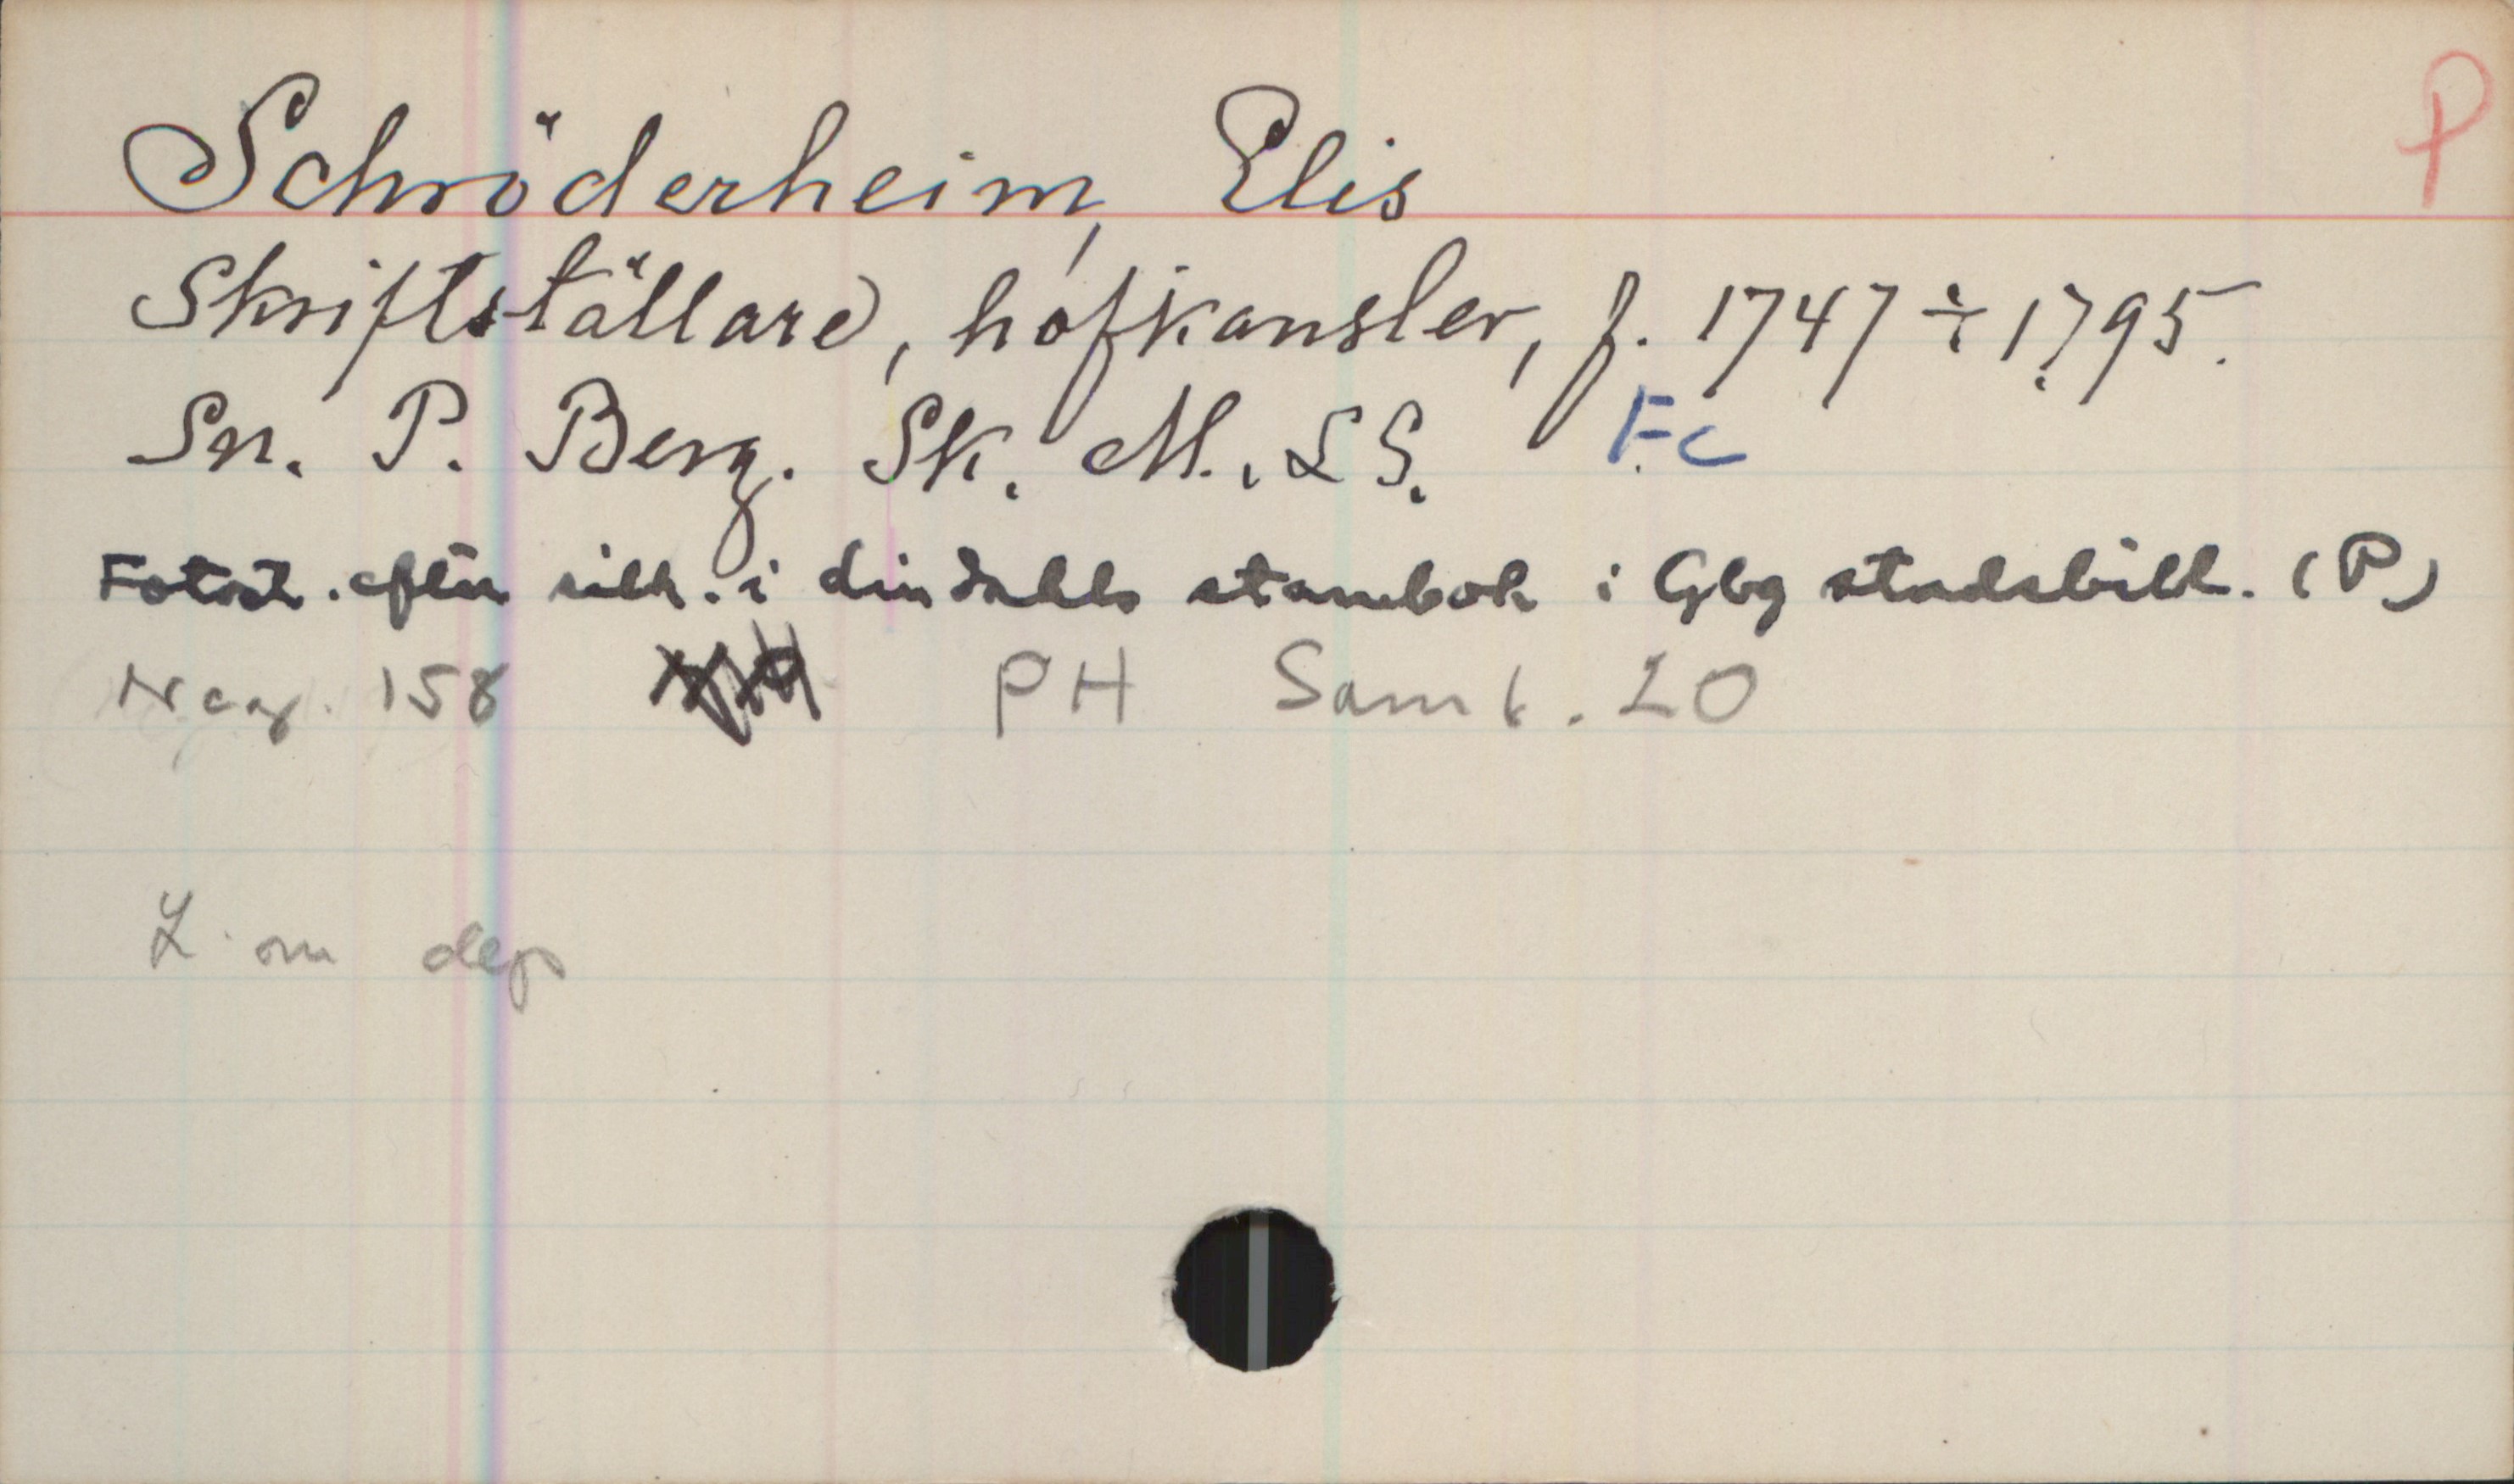 P
Schröderheim, Elis
Skriftställare, hofkansler, f. 1747 ÷ 1795.
Sn. P. Berg. Sk. M., LS. FC
Fotost. efter silh. i Lindahls stambok i Gbg stadsbibl. (P)
Neg. 158 PH Saml. 20
L. om dep